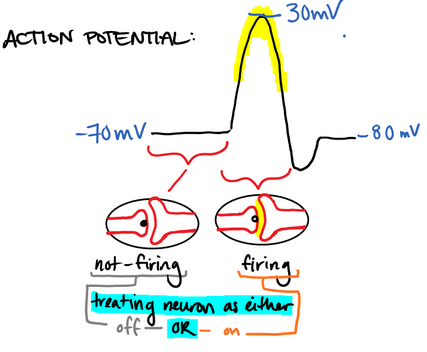 30mV
ACTION POTENTIAL:
-70mV
-80mV
not-firing
firing
treating neuron as either
off - OR - on